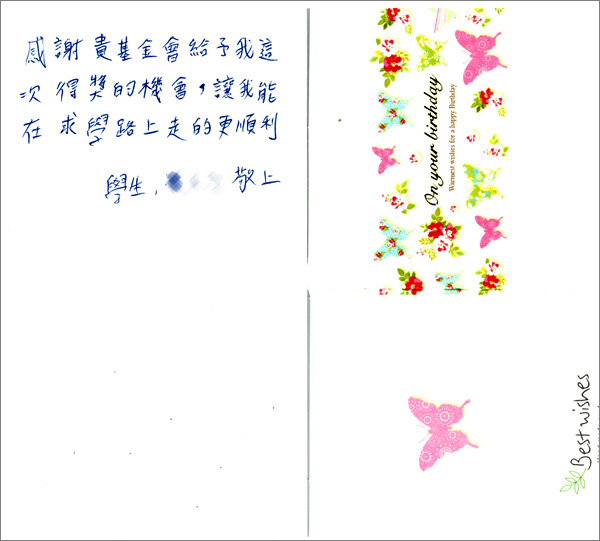 感謝貴基金會給予我這
次得獎的機會，讓我能
在求學路上走的更順利
學生, 敬上
On your birthday
Warmest wishes for a happy Birthday
Best wishes